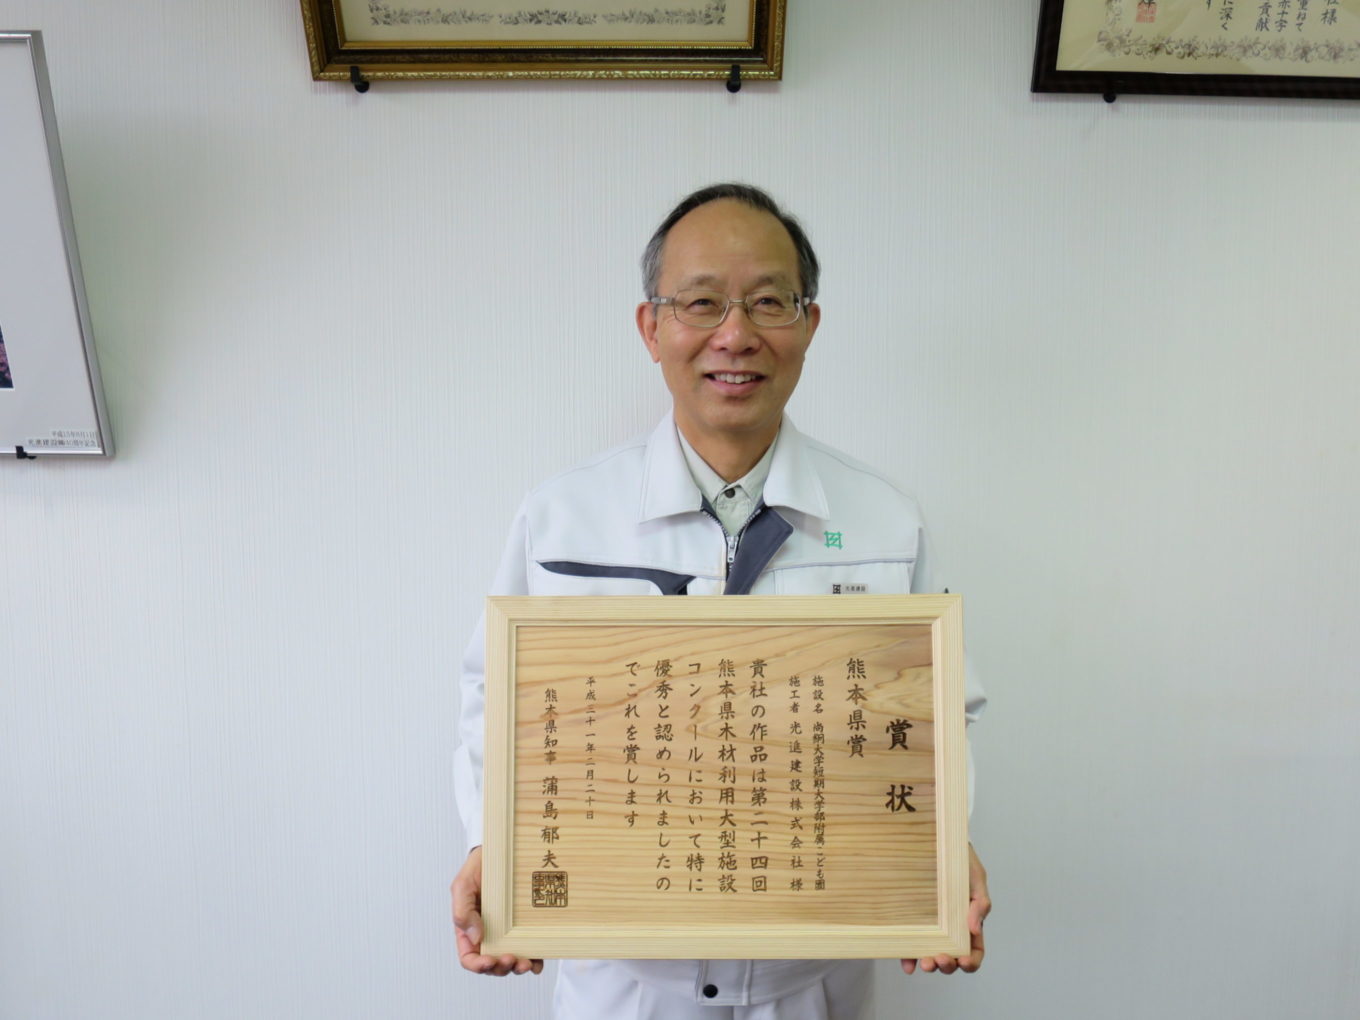 賞状
熊本県賞
施設名 尚絅大学短期大学部附属こども園
施工者 光進建設株式会社様
貴社の作品は第二十四回
熊本県木材利用大型施設
コンクールにおいて特に
優秀と認められましたの
でこれを賞します
平成三十一年二月二十日
熊本県知事 蒲島郁夫
光進建設
平成15年8月1日
重ねて
赤十字
貢献
に深く
す